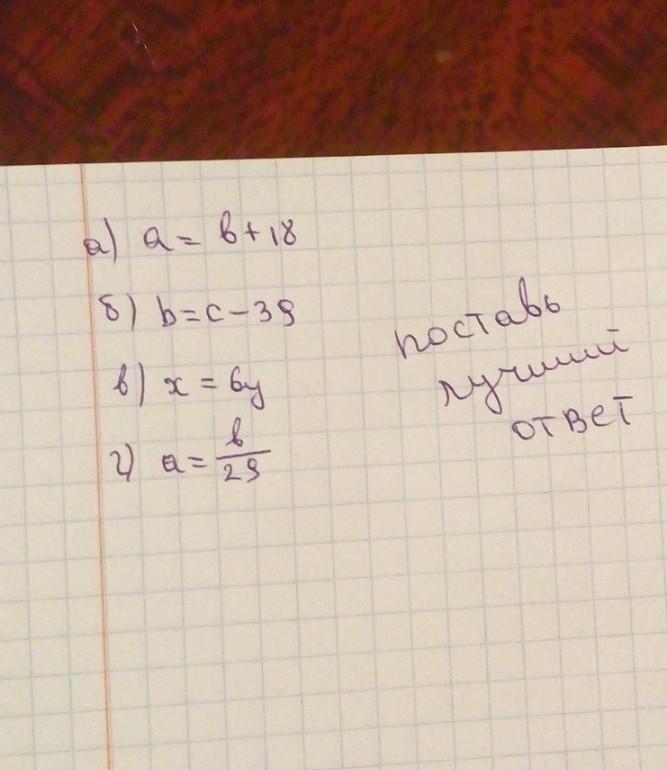 а) a = b + 18
б) b = c - 39
в) x = 6y
г) a = b/29
поставь
лучший
ответ